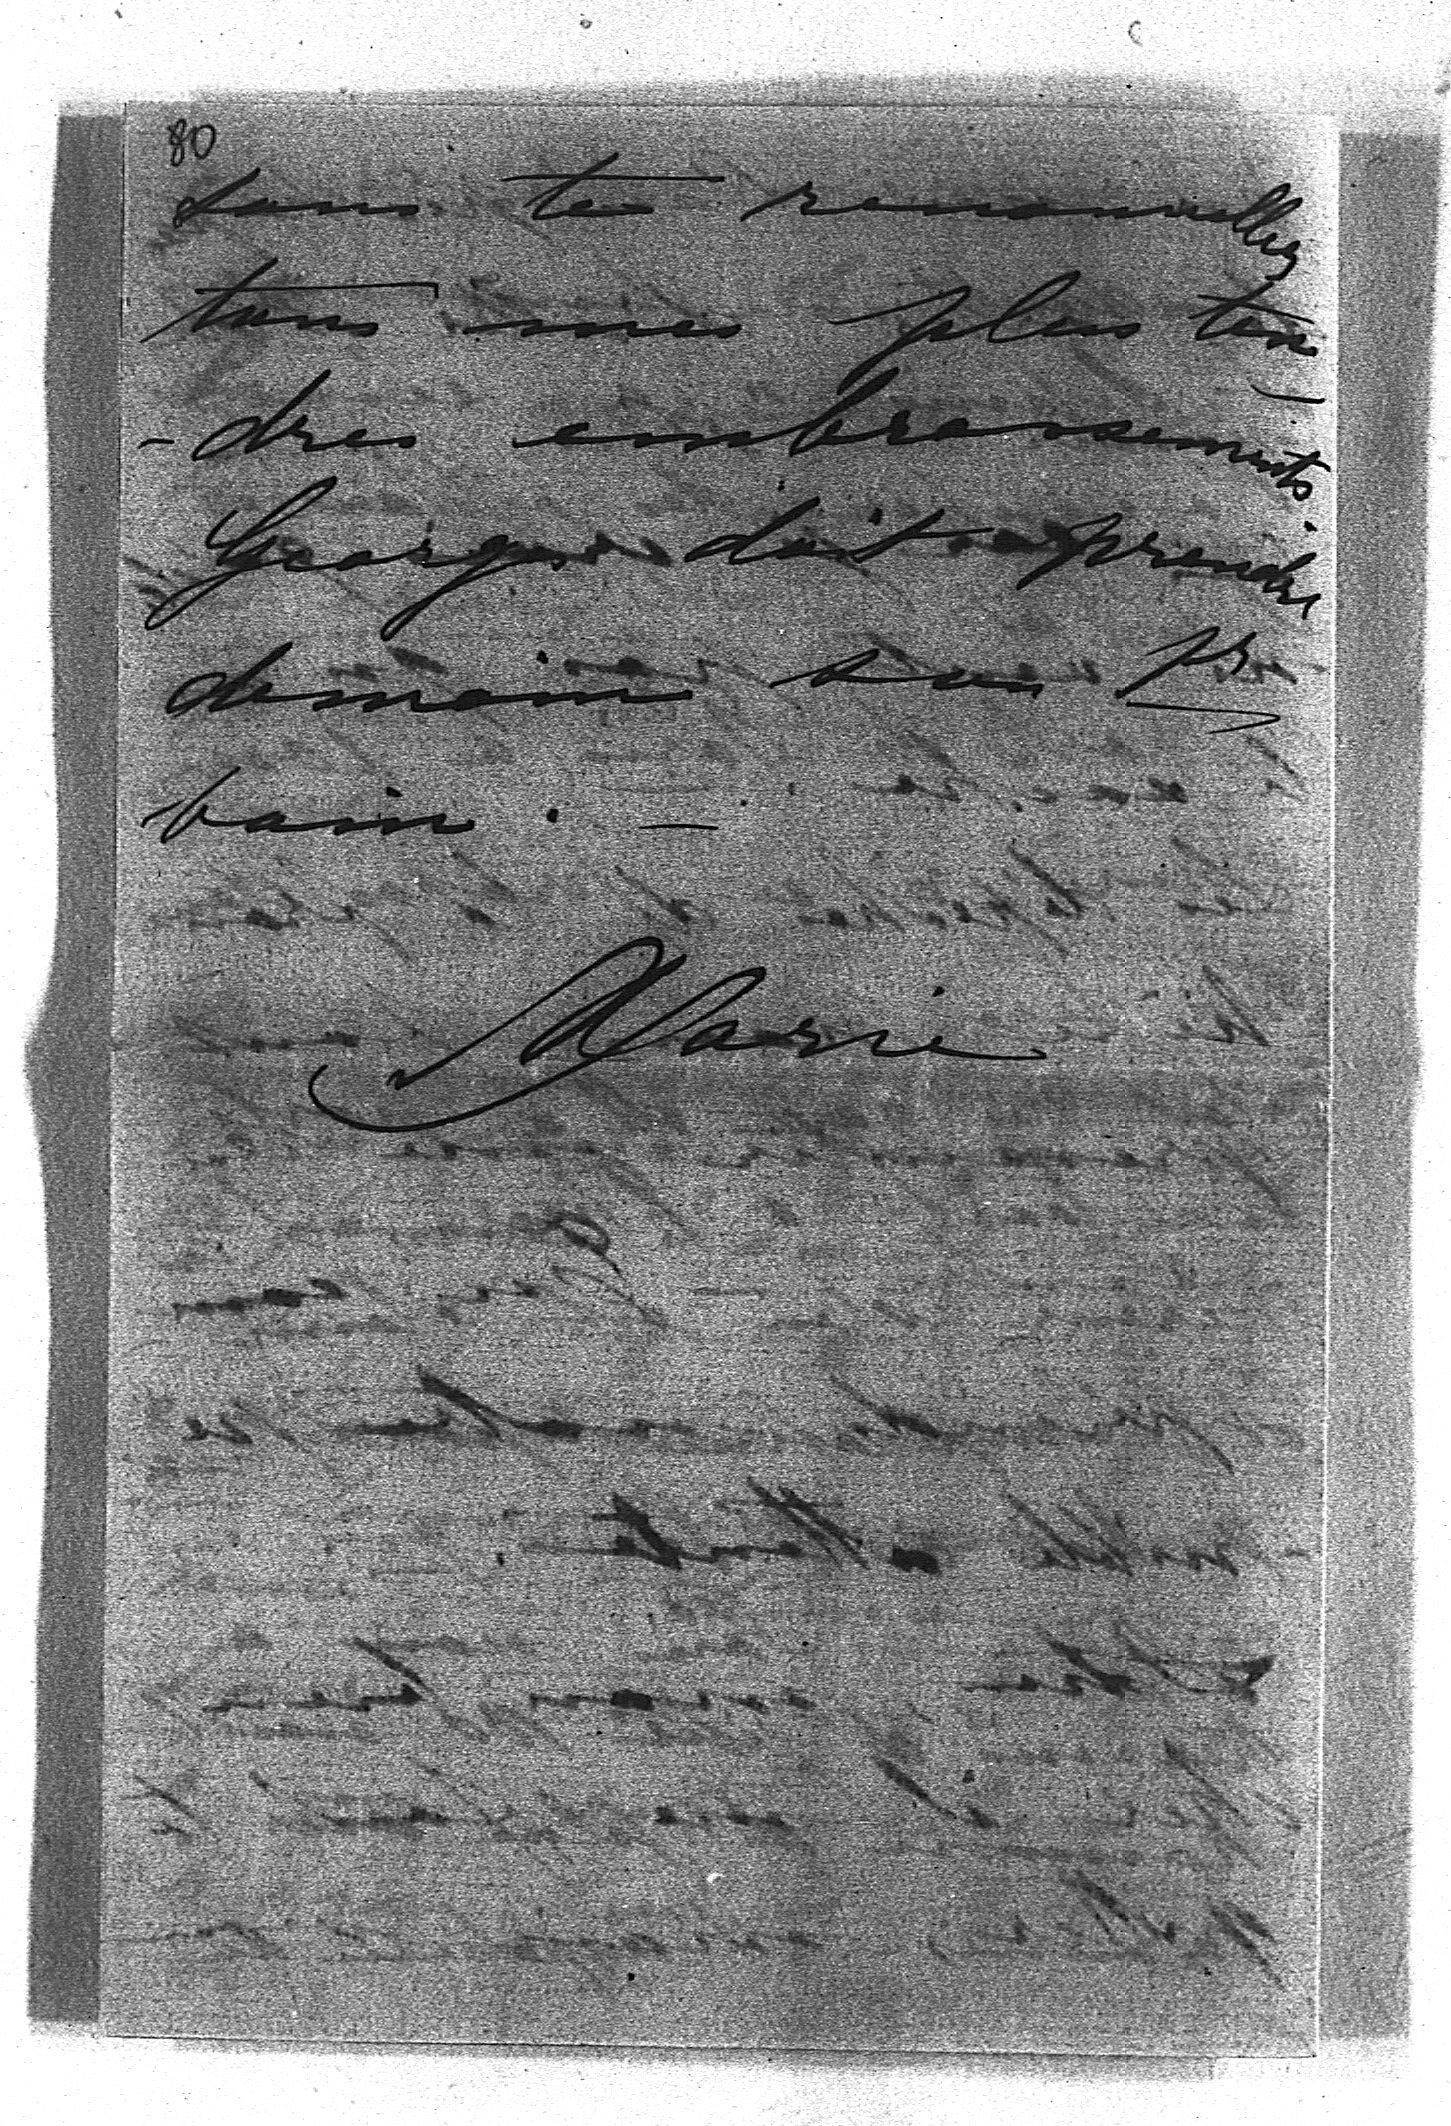 80
sans te renouveller
tous mes plus ten
-dres embrassements.
Georges doit prendre
demain son 1er
bain. —
Marie